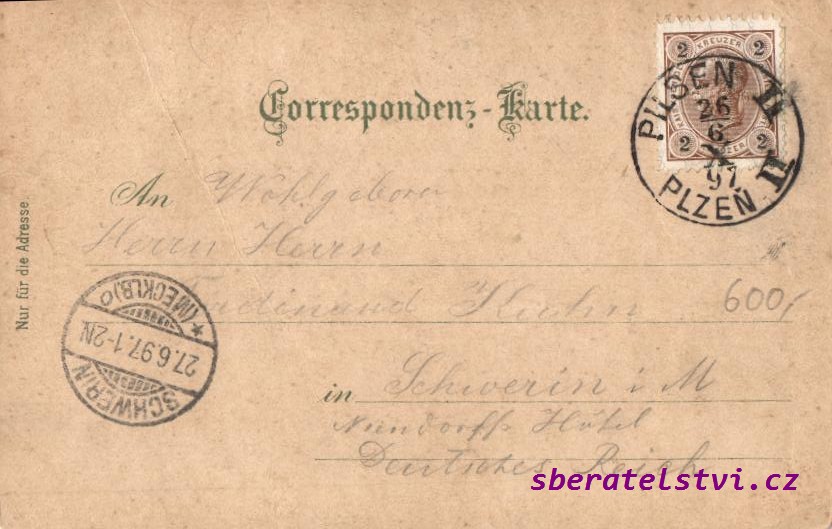 Correspondenz-Karte.
2 KREUZER 2
2 KREUZER 2
PILSEN II
26
6
97
PLZEŇ II
An Wohlgeboren
Herrn Herrn
Ferdinand Kuhn
600,-
in Schwerin i M
Niendorffs Hôtel
Deutsches Reich
Nur für die Adresse.
SCHWERIN
27.6.97.1-2N.
* (MECKLB) o
sberatelstvi.cz